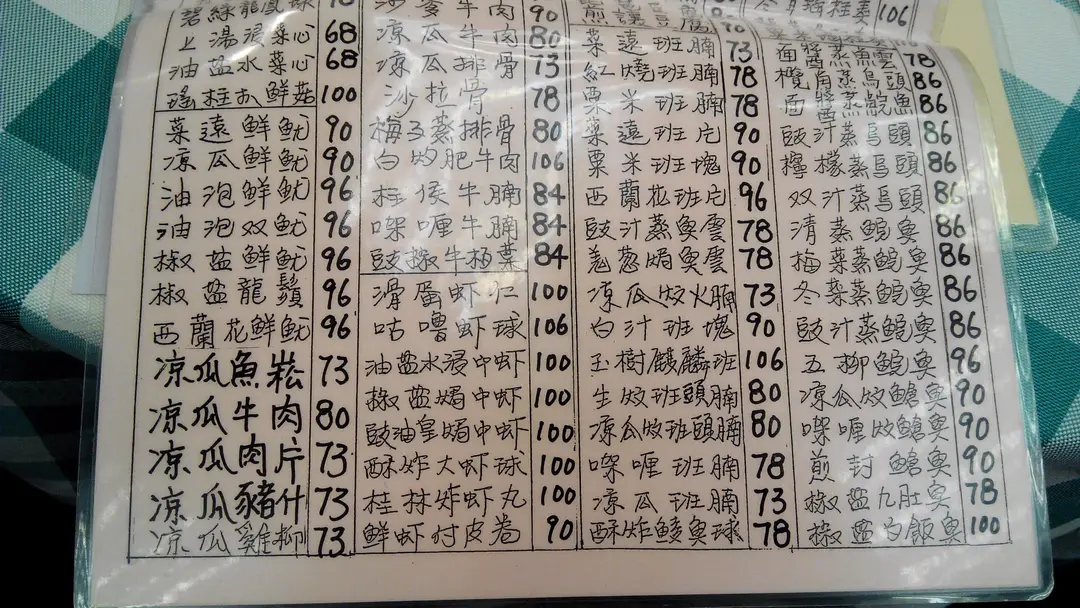 上湯浸菜心 68
油盐水菜心 68
瑤柱扒鮮菇 100
菜遠鮮魷 90
凉瓜鮮魷 90
油泡鮮魷 96
油泡双魷 96
椒盐鮮魷 96
椒盐龍鬚 96
西蘭花鮮魷 96
凉瓜魚崧 73
凉瓜牛肉 80
凉瓜肉片 73
凉瓜豬什 73
凉瓜雞柳 73
沙爹牛肉 90
凉瓜牛肉 80
凉瓜排骨 73
沙拉骨 78
梅子蒸排骨 80
白灼肥牛肉 106
柱侯牛腩 84
㗎喱牛腩 84
豉椒牛栢葉 84
滑蛋虾仁 100
咕嚕虾球 106
油盐水浸中虾 100
椒盐焗中虾 100
豉油皇焗中虾 100
酥炸大虾球 100
桂林炸虾丸 100
鮮虾付皮卷 90
菜遠班腩 73
紅燒班腩 78
粟米班腩 78
菜遠班片 90
粟米班塊 90
西蘭花班片 96
豉汁蒸奥雲 78
羌葱焗奥雲 78
凉瓜炆火腩 73
白汁班塊 90
玉樹麒麟班 106
生炆班頭腩 80
凉瓜炆班頭腩 80
㗎喱班腩 78
凉瓜班腩 73
酥炸鯪奥球 78
106
面醬蒸魚雲 78
欖角蒸烏頭 86
面醬蒸鯇魚 86
豉汁蒸烏頭 86
檸檬蒸烏頭 86
双汁蒸烏頭 86
清蒸鯇奥 86
梅菜蒸鯇奥 86
冬菜蒸鯇奥 86
豉汁蒸鯇奥 86
五柳鯇奥 96
凉瓜炆鯧奥 90
㗎喱炆鯧奥 90
煎封鯧奥 90
椒盐九肚奥 78
椒盐白飯奥 100